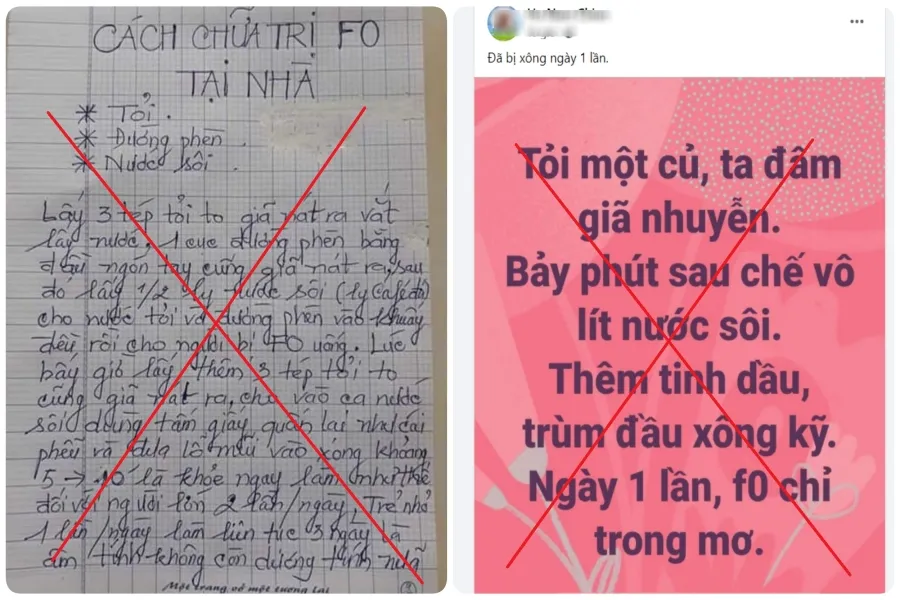 CÁCH CHỮA TRỊ F0
TẠI NHÀ
* Tỏi.
* Đường phèn.
* Nước sôi.
Lấy 3 tép tỏi to giã nát ra vắt
lấy nước, 1 cục đường phèn bằng
đầu ngón tay cũng giã nát ra, sau
đó lấy 1/2 ly nước sôi (ly café đá)
cho nước tỏi và đường phèn vào khuấy
đều rồi cho người bị F0 uống. Lúc
bấy giờ lấy thêm 3 tép tỏi to
cũng giã nát ra, cho vào ca nước
sôi dùng tấm giấy quấn lại như cái
phễu và đưa lỗ mũi vào xông khoảng
5 → 10' là khỏe ngay làm như thế
đối với người lớn 2 lần/ngày. Trẻ nhỏ
1 lần/ngày làm liên tục 3 ngày là
âm tính không còn dương tính nữa
Một trang vở một tương lai
Đã bị xông ngày 1 lần.
Tỏi một củ, ta đâm
giã nhuyễn.
Bảy phút sau chế vô
lít nước sôi.
Thêm tinh dầu,
trùm đầu xông kỹ.
Ngày 1 lần, f0 chỉ
trong mơ.